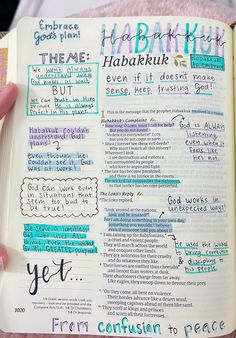 Embrace
God's plan!
HABAKKUK
THEME:
We won't always
understand why
BUT
we can trust in Him
because He is always
perfect in His plans.
Habakkuk couldn't
understand God's
plans
even though he
couldn't see it, God
was at work!
God can work even
in situations that
seem too bad to
be true!
yet...
1020
Habakkuk
even if it doesn't make
sense, keep trusting God!
This is the message that the prophet Habakkuk received in a vision.
Habakkuk's Complaint
How long, O LORD, must I call for help?
But you do not listen!
but you do not come to save.
Must I forever see these evil deeds?
Why must I watch all this misery?
Wherever I look,
I see destruction and violence.
I am surrounded by people
who love to argue and fight.
The law has become paralyzed,
and there is no justice in the courts.
The wicked far outnumber the righteous,
so that justice has become perverted.
The LORD's Reply
The LORD replied,
"Look around at the nations;
look and be amazed!
For I am doing something in your own day,
something you wouldn't believe
even if someone told you about it.
I am raising up the Babylonians,
a cruel and violent people.
They will march across the world
and conquer other lands.
They are notorious for their cruelty
and do whatever they like.
Their horses are swifter than cheetahs
and fiercer than wolves at dusk.
Their charioteers charge from far away.
Like eagles, they swoop down to devour their prey.
"On they come, all bent on violence.
Their hordes advance like a desert wind,
sweeping captives ahead of them like sand.
They scoff at kings and princes
and scorn all their fortresses.
God is ALWAYS
listening
even when it
feels like
He's not.
God works in
unexpected ways!
He used the wicked
to bring correction
& discipline to
His people.
From confusion to peace